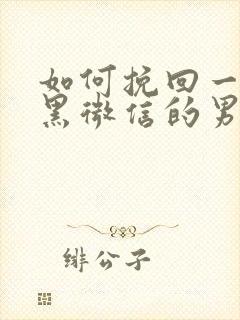 如何挽回一
黑微信的男
绯公子